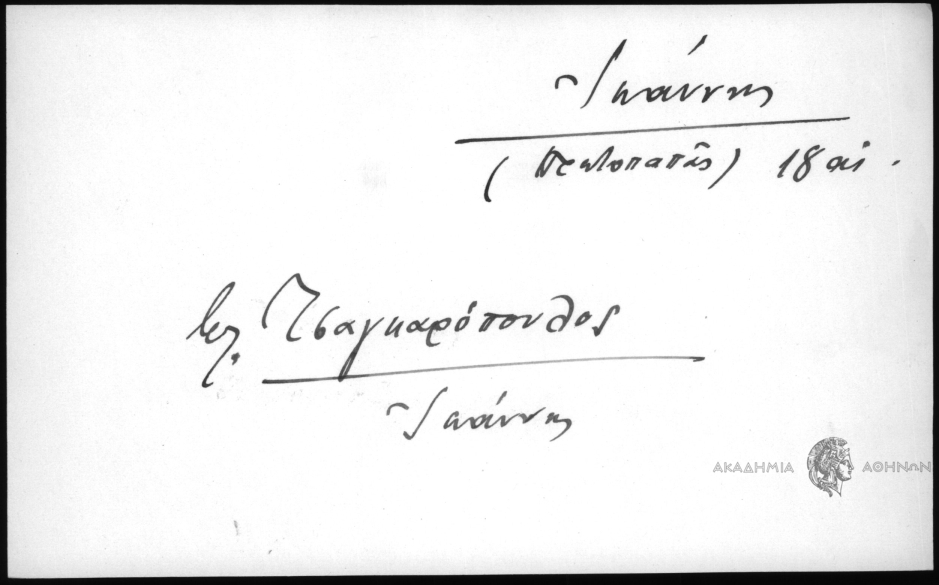 Ἰωάννης
(Πρωτοπαπᾶς) 18 αἰ.
βλ. Τσαγκαρόπουλος
Ἰωάννης
ΑΚΑΔΗΜΙΑ ΑΘΗΝΩΝ